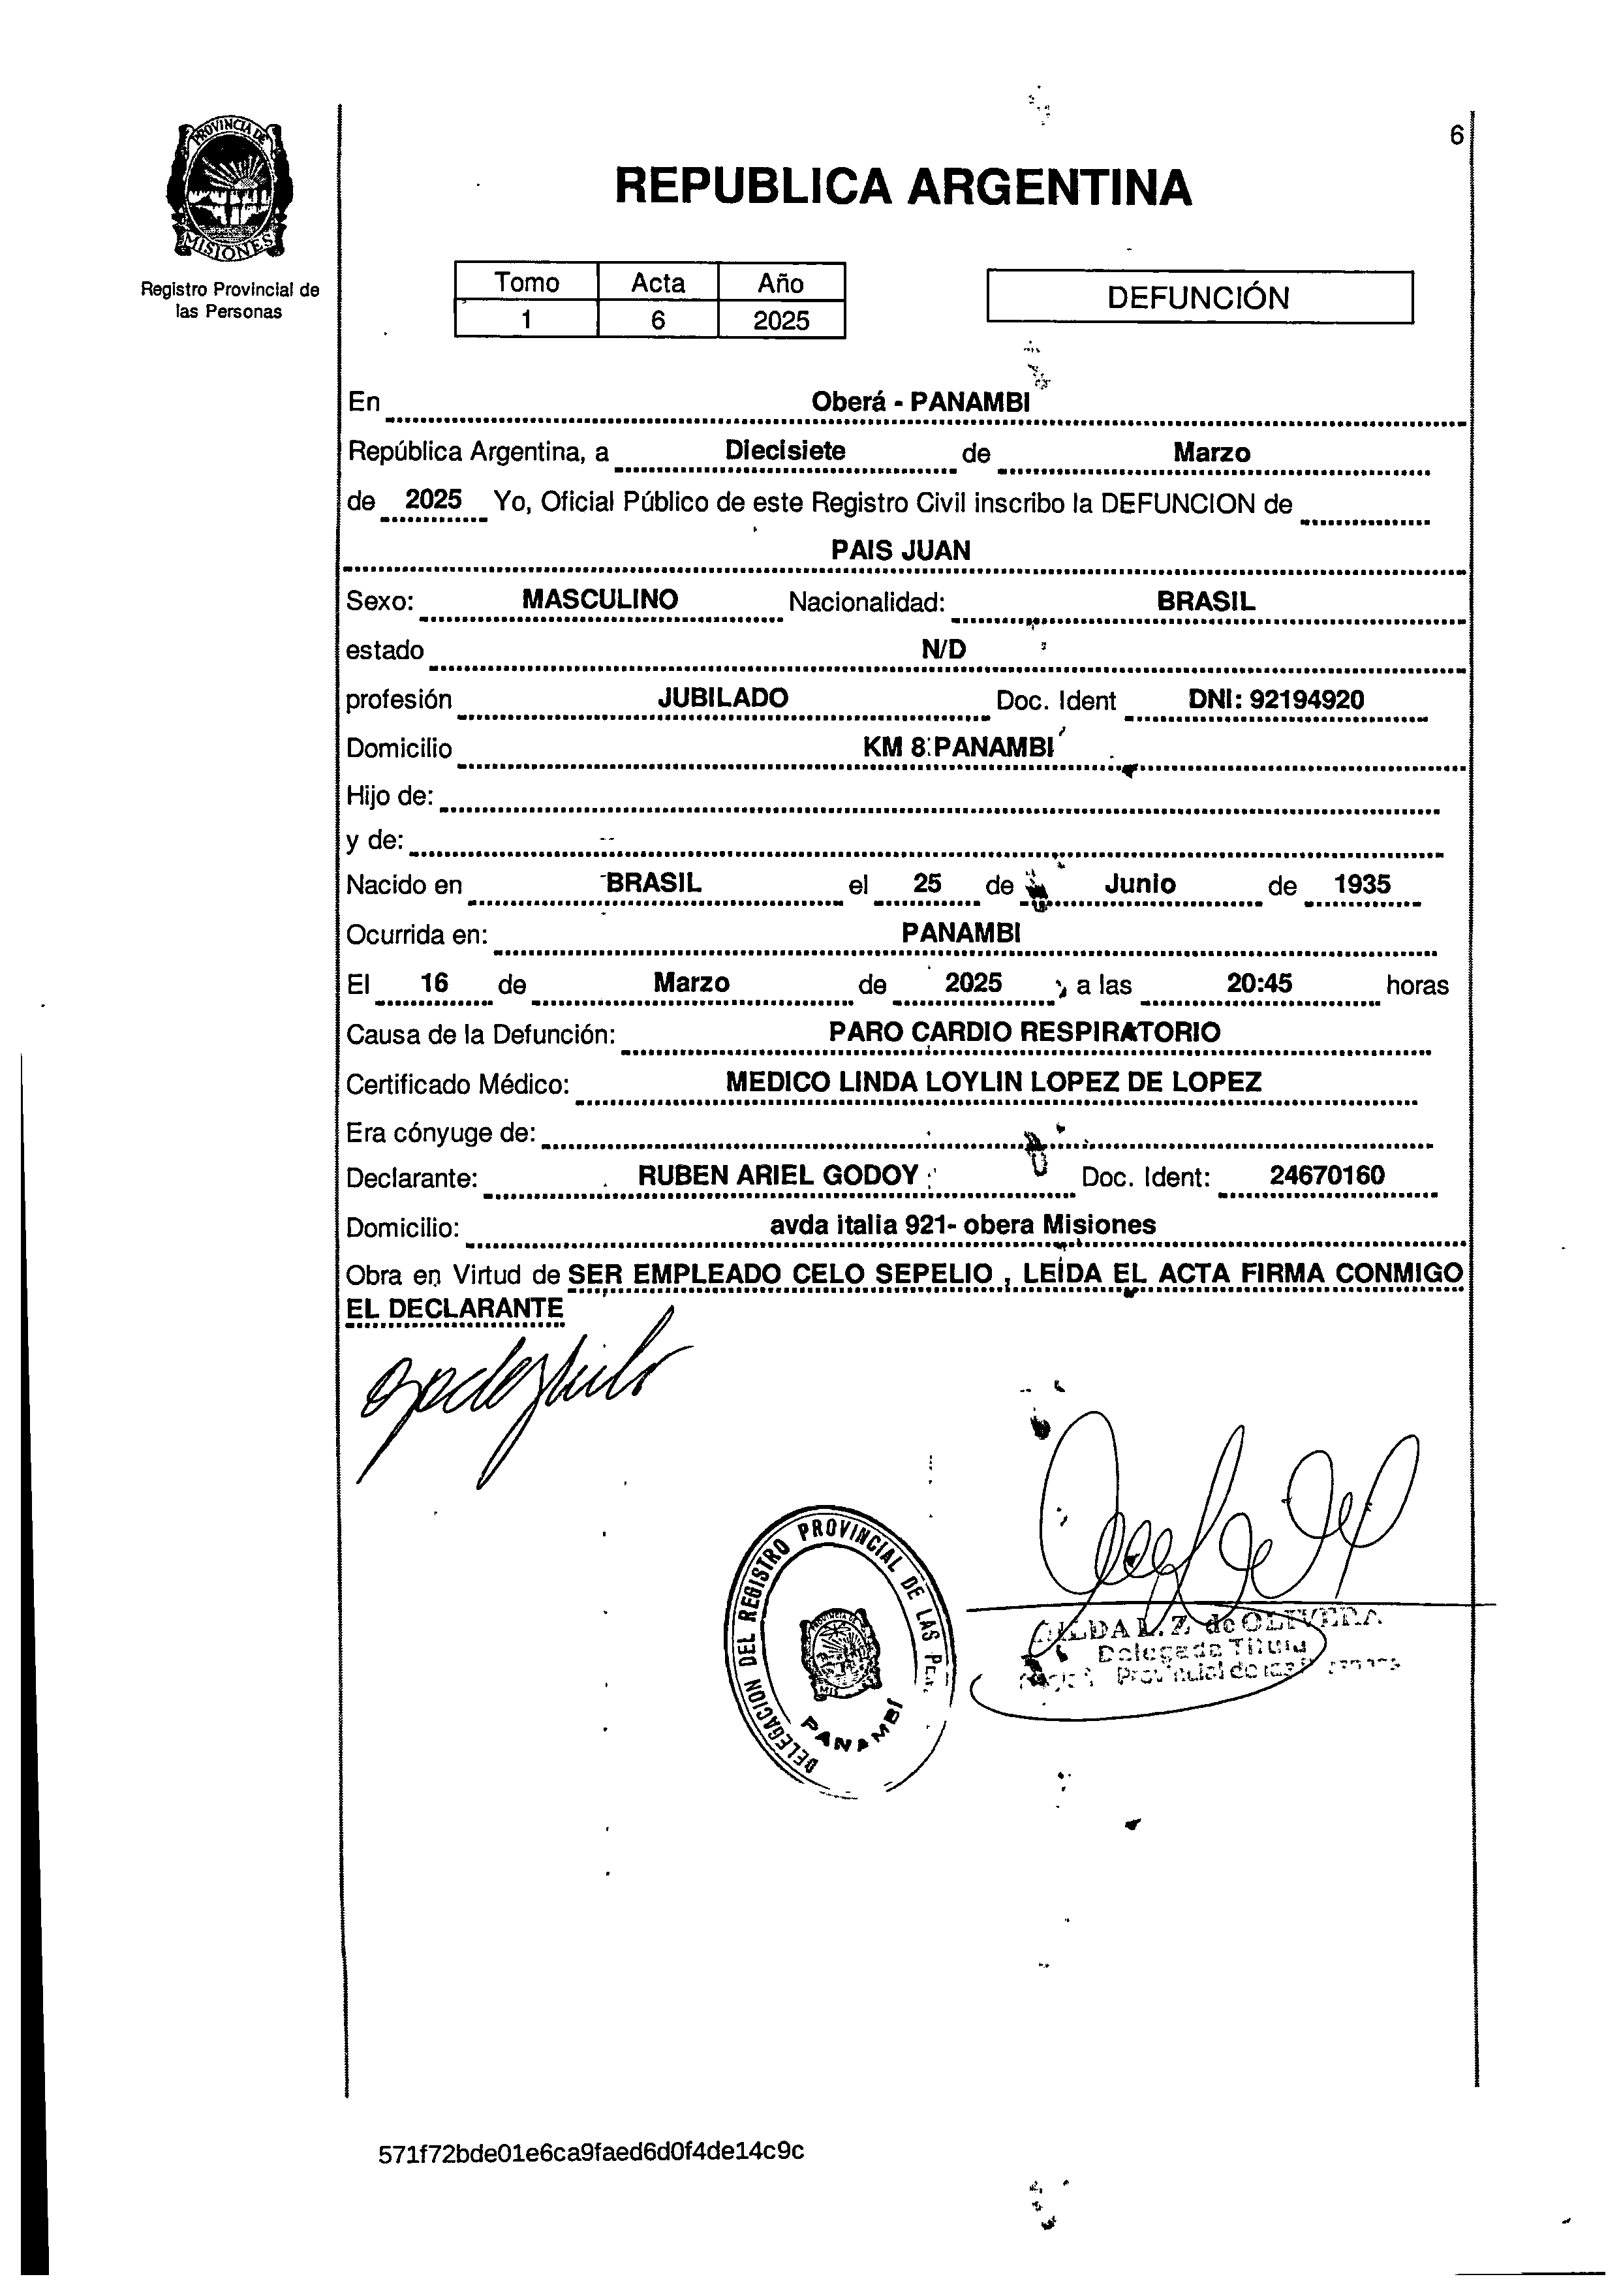 6
PROVINCIA DE
MISIONES
Registro Provincial de
las Personas
REPUBLICA ARGENTINA
Tomo Acta Año
1 6 2025
DEFUNCIÓN
En Oberá - PANAMBI
República Argentina, a Diecisiete de Marzo
de 2025 Yo, Oficial Público de este Registro Civil inscribo la DEFUNCION de
PAIS JUAN
Sexo: MASCULINO Nacionalidad: BRASIL
estado N/D
profesión JUBILADO Doc. Ident DNI: 92194920
Domicilio KM 8 PANAMBI
Hijo de:
y de:
Nacido en BRASIL el 25 de Junio de 1935
Ocurrida en: PANAMBI
El 16 de Marzo de 2025 , a las 20:45 horas
Causa de la Defunción: PARO CARDIO RESPIRATORIO
Certificado Médico: MEDICO LINDA LOYLIN LOPEZ DE LOPEZ
Era cónyuge de:
Declarante: RUBEN ARIEL GODOY Doc. Ident: 24670160
Domicilio: avda italia 921- obera Misiones
Obra en Virtud de SER EMPLEADO CELO SEPELIO , LEÍDA EL ACTA FIRMA CONMIGO
EL DECLARANTE
DELEGACION DEL REGISTRO PROVINCIAL DE LAS
PANAMBÍ
L. Z. de OLIVERA
Delegada Titula
Provincial de las
571f72bde01e6ca9faed6d0f4de14c9c